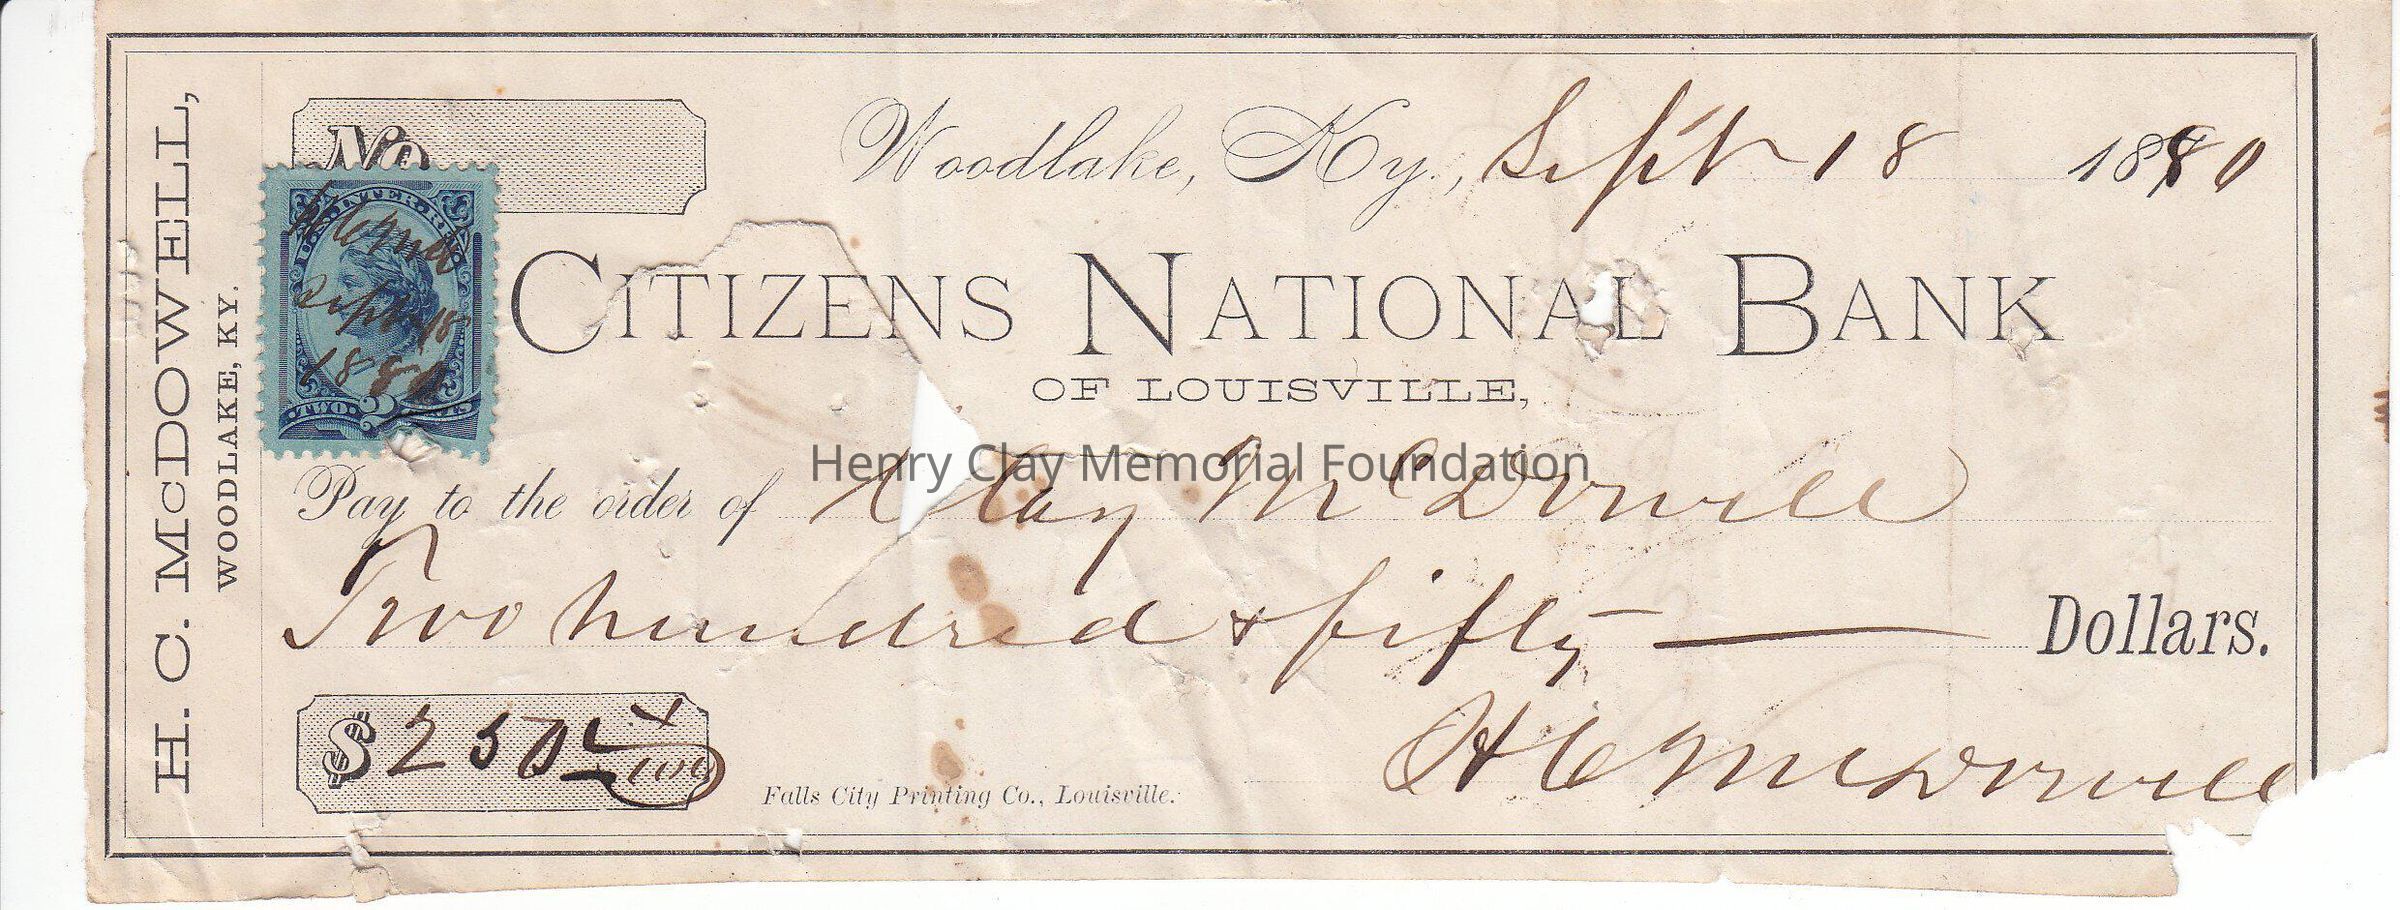 H. C. McDOWELL,
WOODLAKE, KY.
No.
Woodlake, Ky., Sept 18 1880
U.S. INTER. REV.
HCMcD
Sept 18
1880
TWO 2 CENTS
CITIZENS NATIONAL BANK
OF LOUISVILLE,
Henry Clay Memorial Foundation
Pay to the order of Clay McDowell
Two hundred & fifty — Dollars.
$ 250 x/100
Falls City Printing Co., Louisville.
H C McDowell